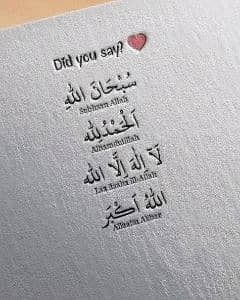 Did you say?
سُبْحَانَ اللهِ
Subhaan Allah
اَلْحَمْدُلِله
Alhamdulillah
لَآ اِلٰهَ اِلَّا اللهُ
Laa ilaaha ill-Allah
اَللهُ أَكْبَر
Allahu Akbar